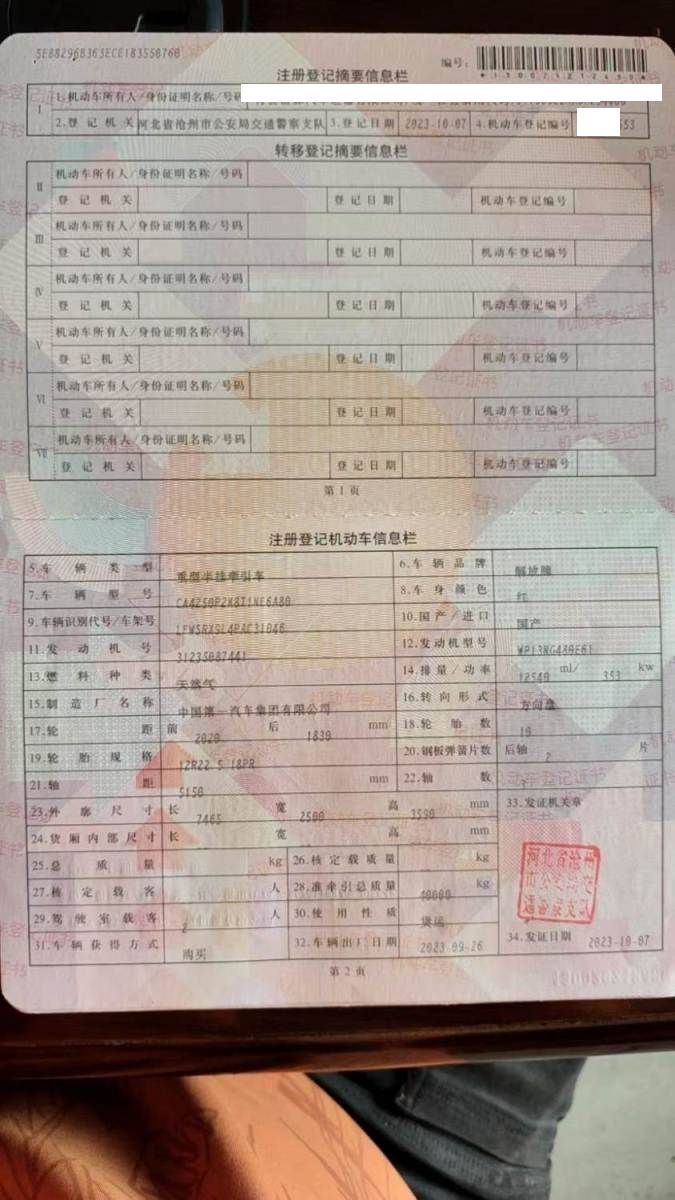 5E88296B363ECE183550760
编号:
*130071212450*
注册登记摘要信息栏
I 1.机动车所有人/身份证明名称/号码
2.登记机关 河北省沧州市公安局交通警察支队 3.登记日期 2023-10-07 4.机动车登记编号 553
转移登记摘要信息栏
II 机动车所有人/身份证明名称/号码
登记机关 登记日期 机动车登记编号
III 机动车所有人/身份证明名称/号码
登记机关 登记日期 机动车登记编号
IV 机动车所有人/身份证明名称/号码
登记机关 登记日期 机动车登记编号
V 机动车所有人/身份证明名称/号码
登记机关 登记日期 机动车登记编号
VI 机动车所有人/身份证明名称/号码
登记机关 登记日期 机动车登记编号
VII 机动车所有人/身份证明名称/号码
登记机关 登记日期 机动车登记编号
第1页
注册登记机动车信息栏
5.车辆类型 重型半挂牵引车 6.车辆品牌 解放牌
7.车辆型号 CA4250P2K8T1NE6A80 8.车身颜色 红
9.车辆识别代号/车架号 LFWSRXSL4PAC31046 10.国产/进口 国产
11.发动机号 31235087441 12.发动机型号 WP13NG480E61
13.燃料种类 天然气 14.排量/功率 12540 ml/ 353 kw
15.制造厂名称 中国第一汽车集团有限公司 16.转向形式 方向盘
17.轮距 前 2020 后 1830 mm 18.轮胎数 10
19.轮胎规格 12R22.5 18PR 20.钢板弹簧片数 后轴 2 片
21.轴距 5150 mm 22.轴数
23.外廓尺寸 长 7465 宽 2500 高 3590 mm 33.发证机关章
24.货厢内部尺寸 长 宽 高 mm
25.总质量 kg 26.核定载质量 kg
27.核定载客 人 28.准牵引总质量 40000 kg
29.驾驶室载客 2 人 30.使用性质 货运
31.车辆获得方式 购买 32.车辆出厂日期 2023-09-26 34.发证日期 2023-10-07
河北省沧州
市公安局交
通警察支队
第2页